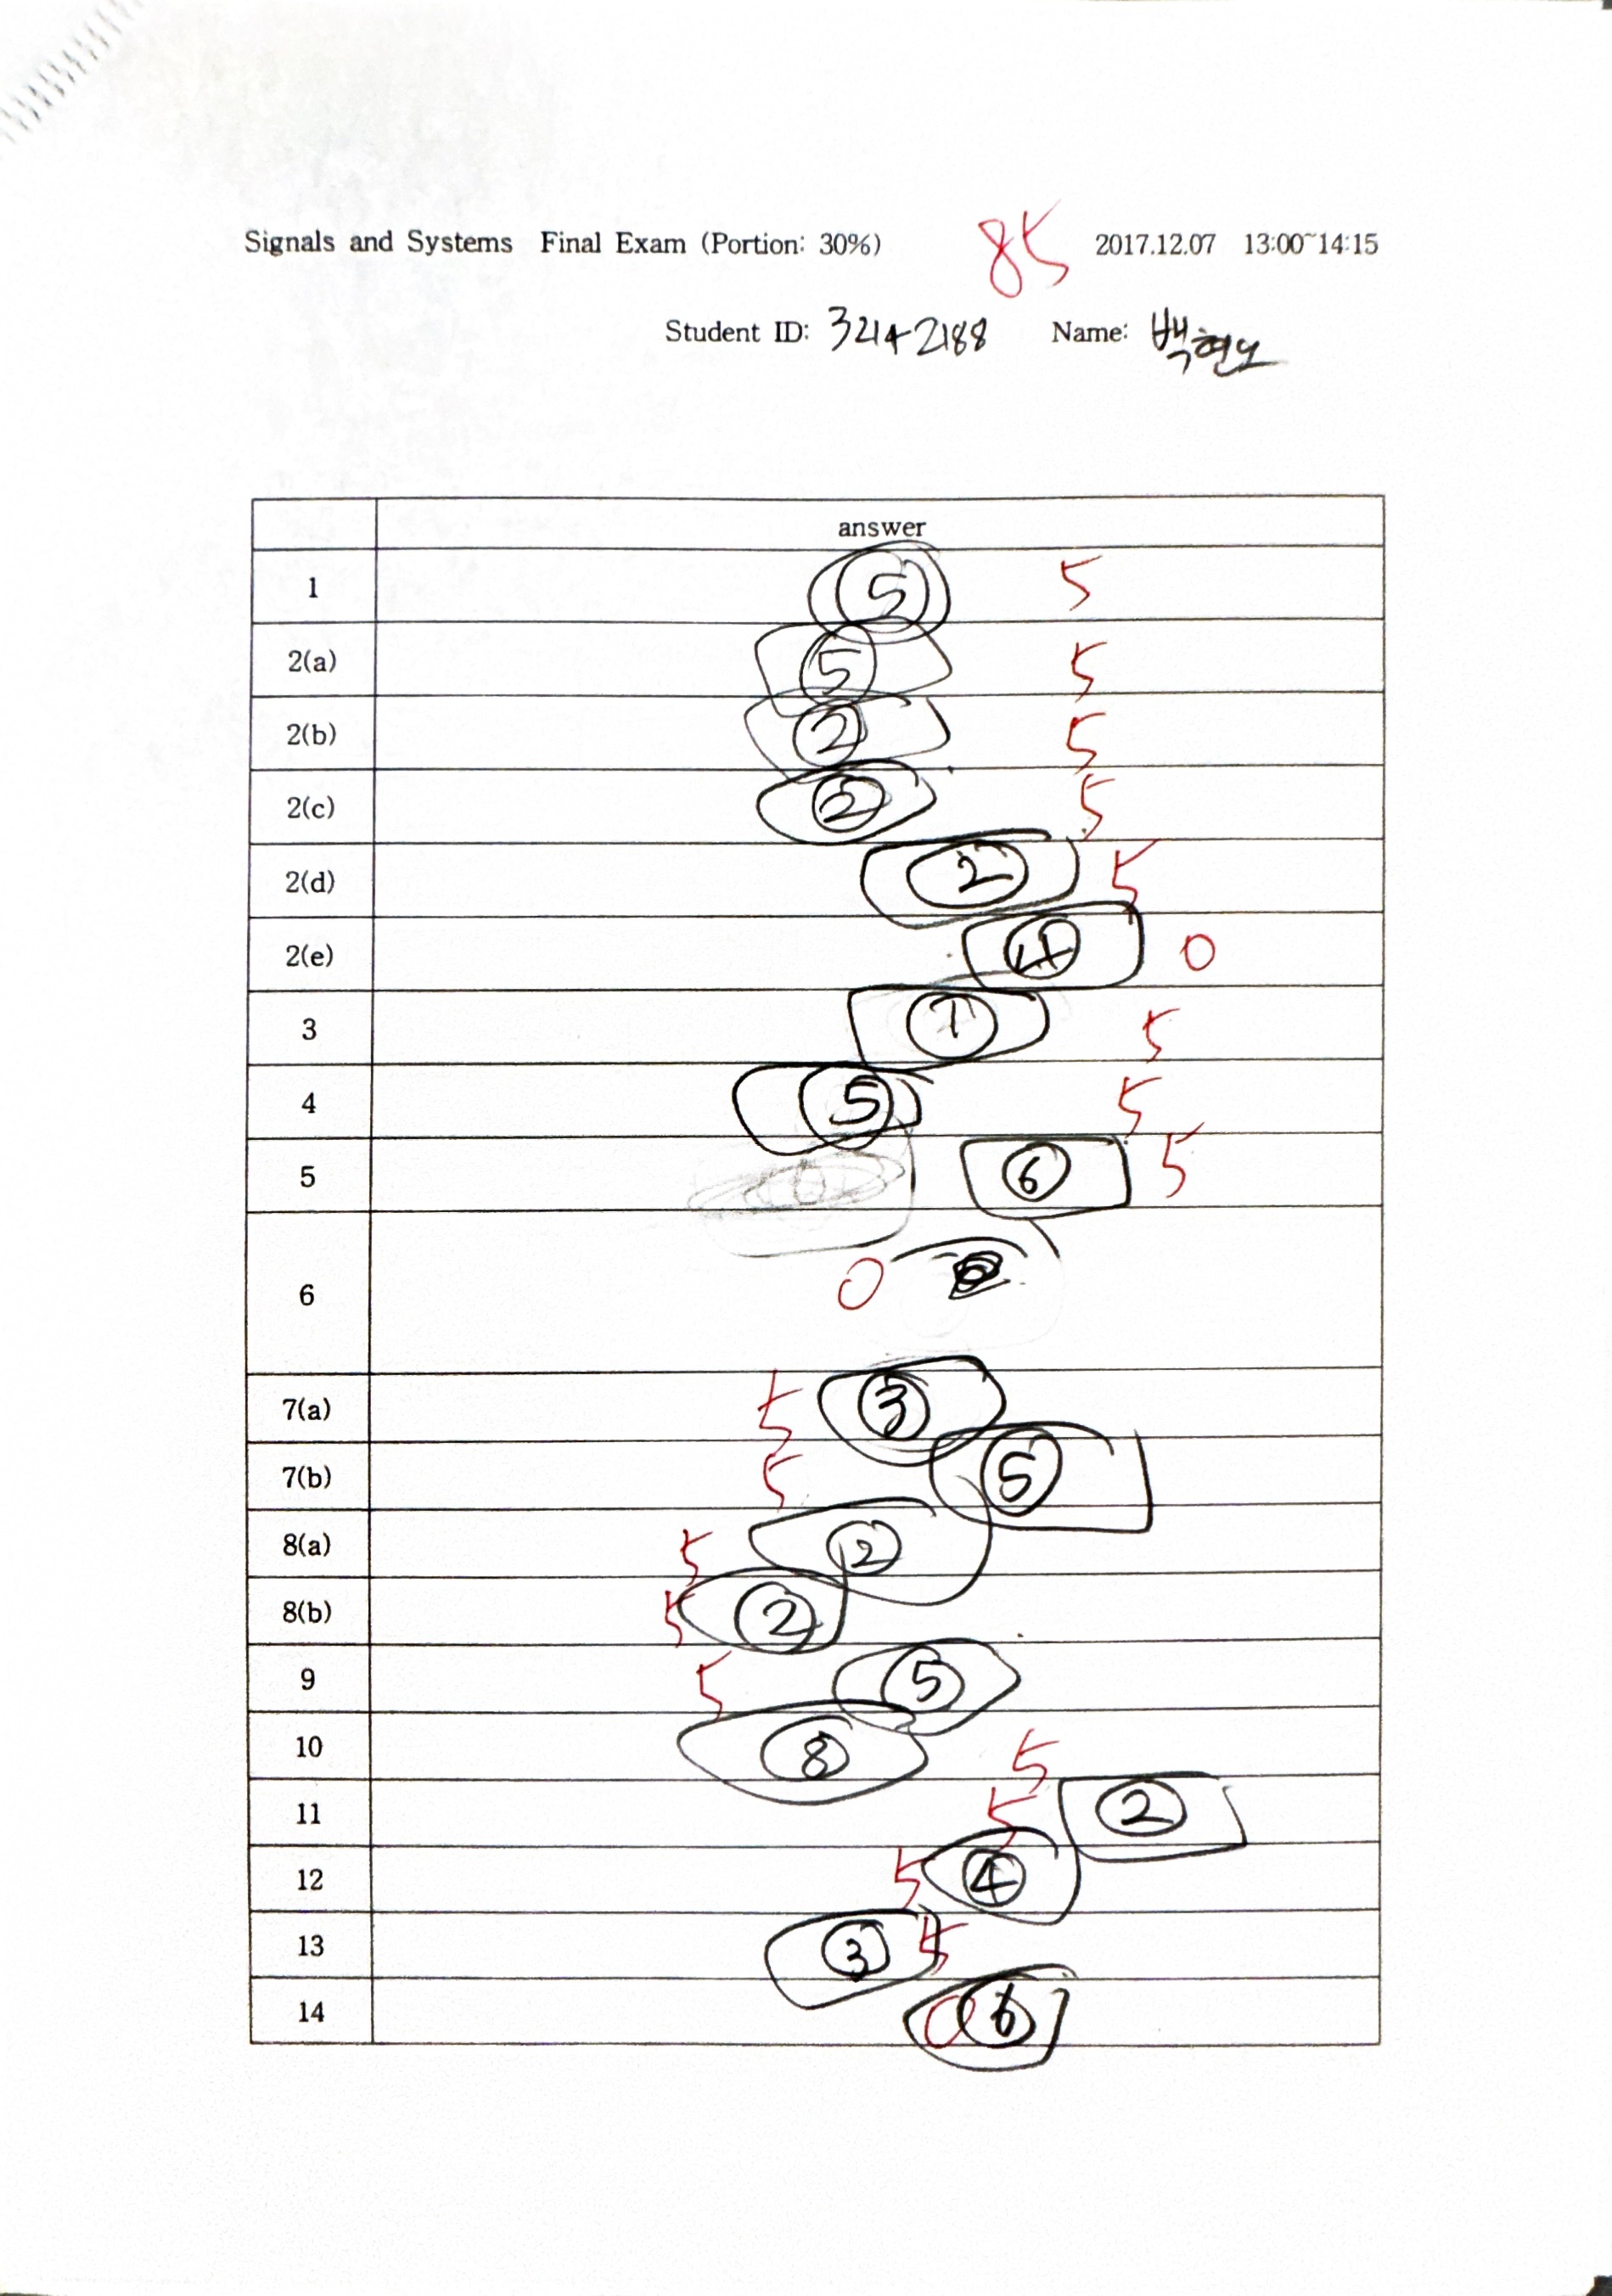 Signals and Systems Final Exam (Portion: 30%) 85 2017.12.07 13:00~14:15
Student ID: 32142188 Name: 백현노
answer
1 5 5
2(a) 5 5
2(b) 2 5
2(c) 2 5
2(d) 2 5
2(e) 4 0
3 7 5
4 5 5
5 6 5
6 0
7(a) 5 3
7(b) 5 5
8(a) 5 2
8(b) 5 2
9 5 5
10 8 5
11 5 2
12 5 4
13 3 5
14 0 6